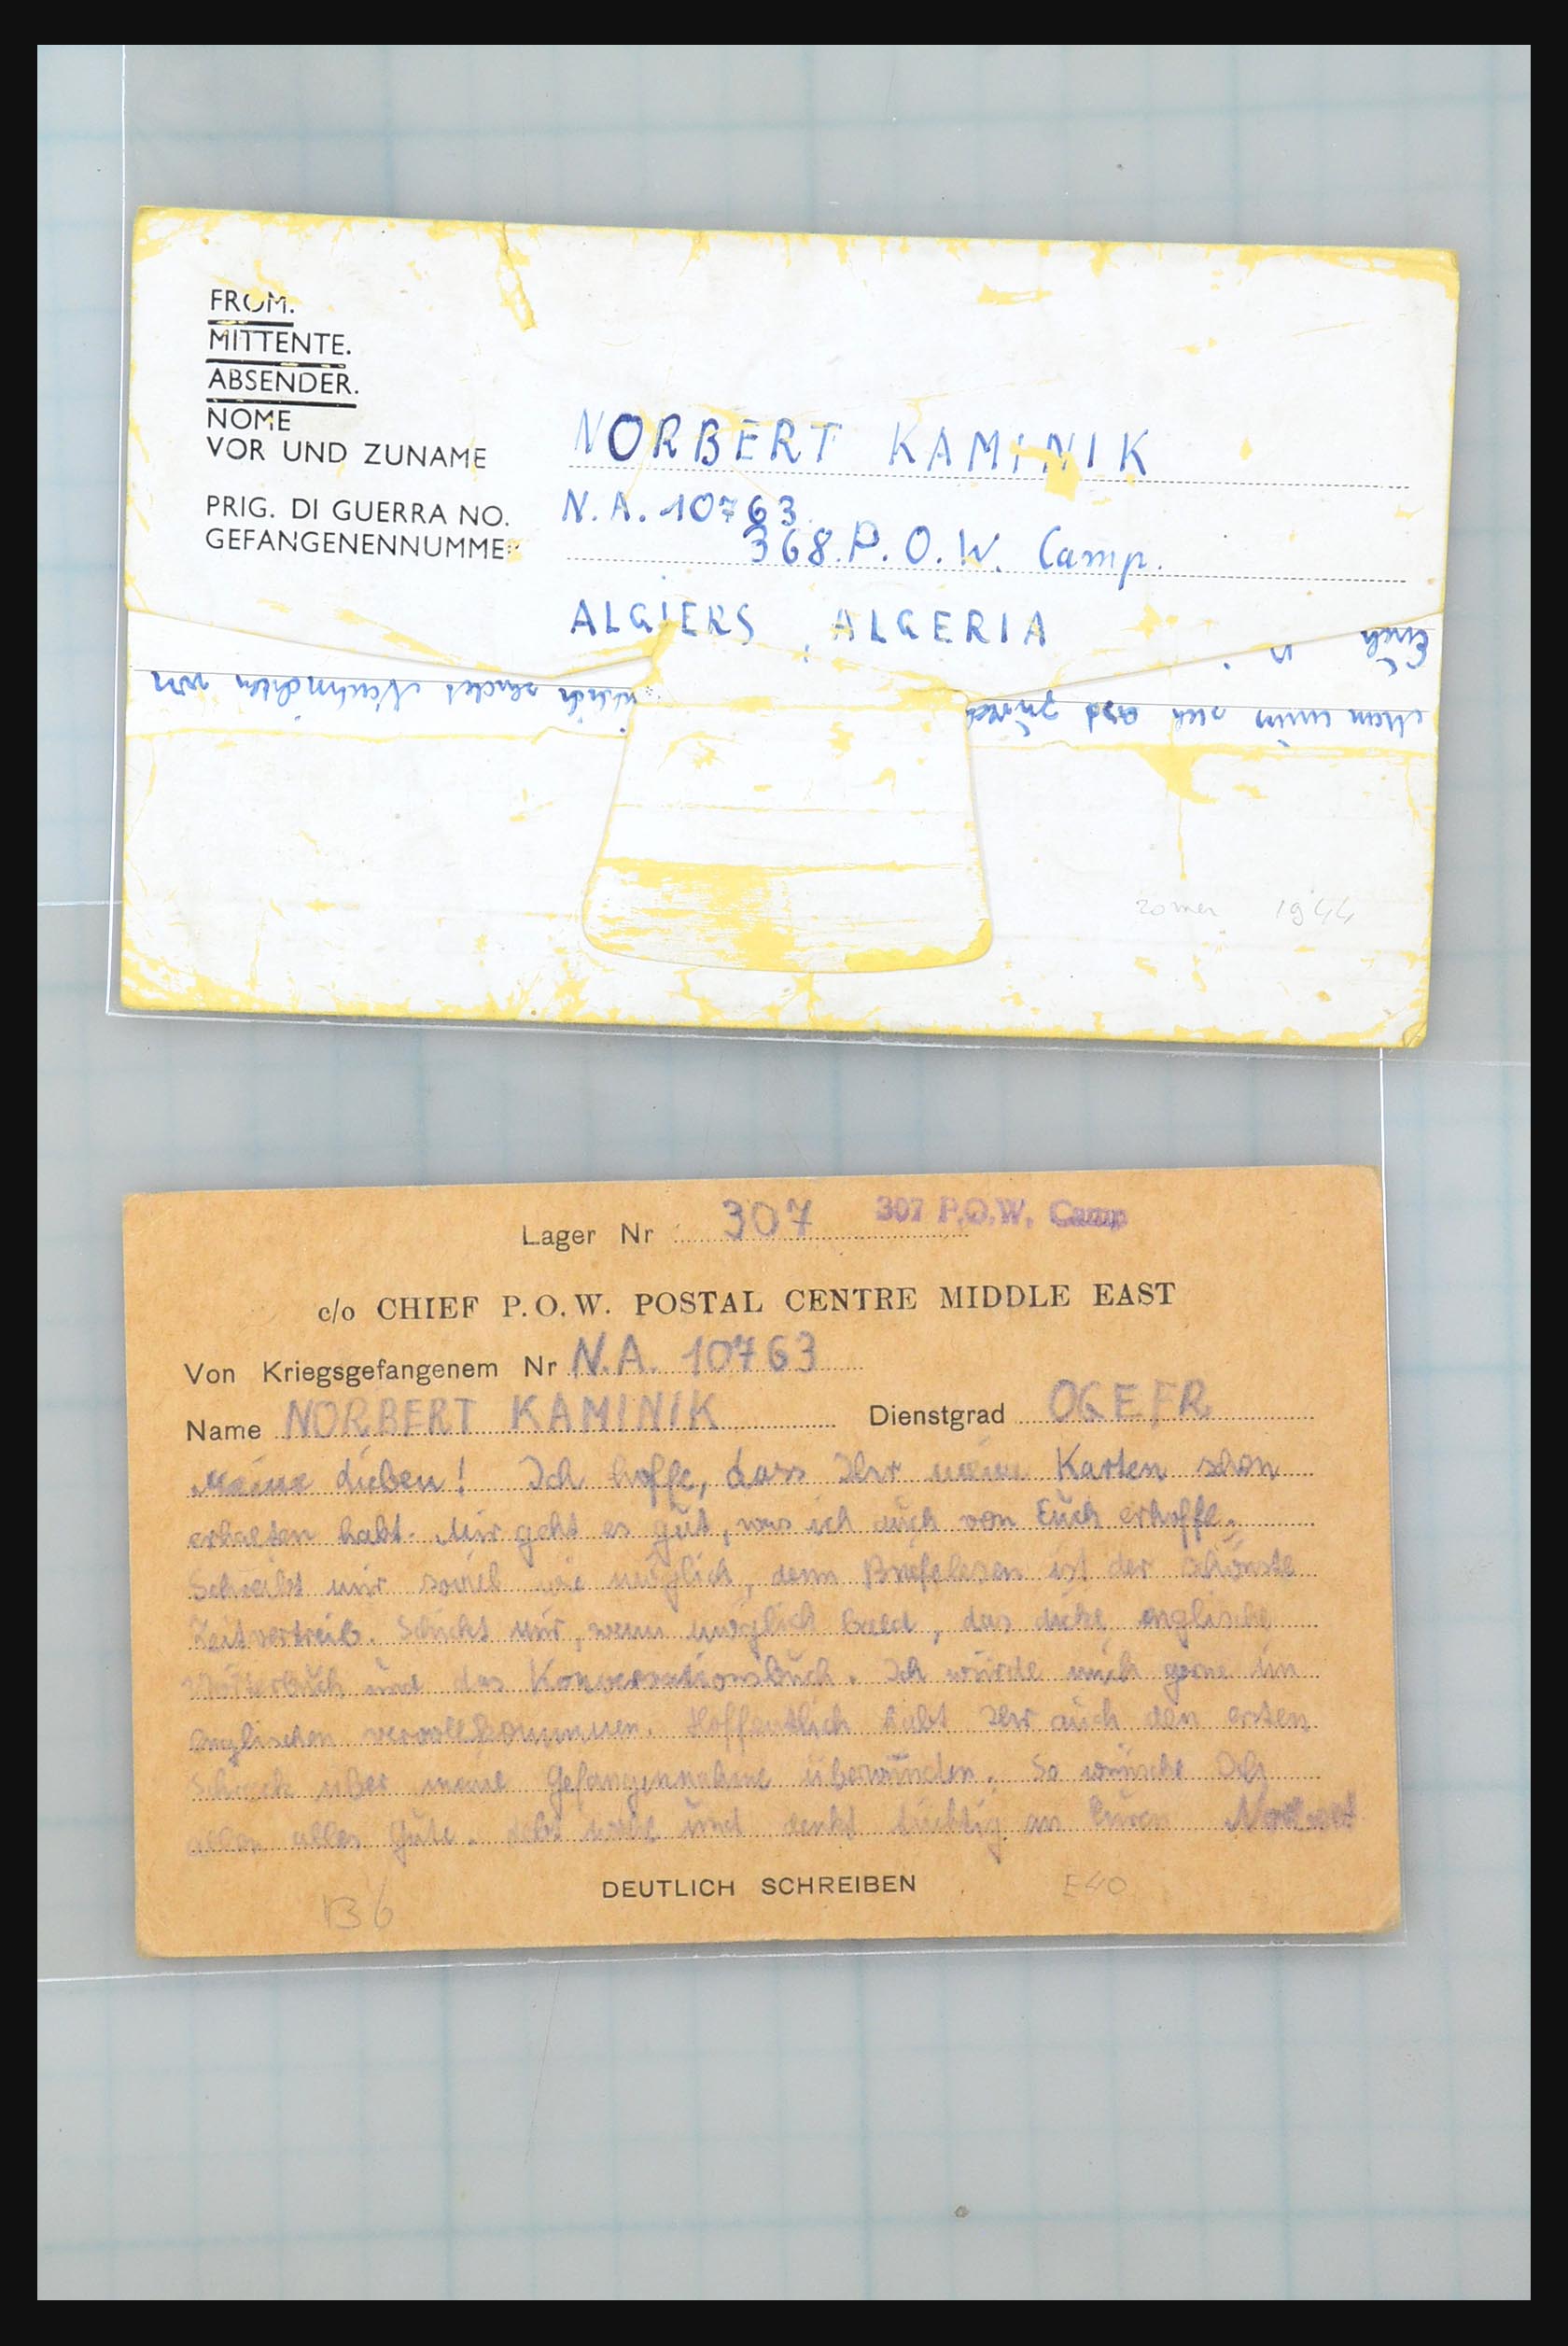 FROM.
MITTENTE.
ABSENDER.
NOME
VOR UND ZUNAME NORBERT KAMINIK
PRIG. DI GUERRA NO. N.A. 10763
GEFANGENENNUMMER 368. P.O.W. Camp.
ALGIERS, ALGERIA
Euch
sendet Nachrichten von
1944
Lager Nr 307 307 P.O.W. Camp
c/o CHIEF P.O.W. POSTAL CENTRE MIDDLE EAST
Von Kriegsgefangenem Nr N.A. 10763
Name NORBERT KAMINIK Dienstgrad OGEFR
Meine Lieben! Ich hoffe, dass Ihr meine Karten schon
erhalten habt. Mir geht es gut, was ich auch von Euch erhoffe.
Schreibt mir soviel wie möglich, denn Briefelesen ist der schönste
Zeitvertreib. Schickt mir, wenn möglich bald, das dicke englische
Wörterbuch und das Konversationsbuch. Ich würde mich gerne im
englischen vervollkommnen. Hoffentlich habt Ihr auch den ersten
Schreck über meine Gefangennahme überwunden. So wünsche Ich
allen alles Gute. Lebt wohl und denkt tüchtig an Euren Norbert
DEUTLICH SCHREIBEN
B6
E40